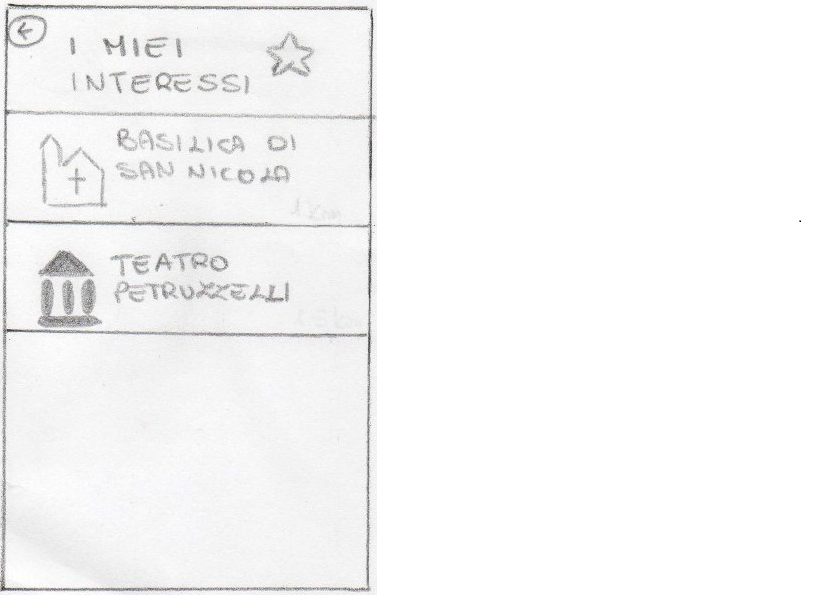 I MIEI
INTERESSI
BASILICA DI
SAN NICOLA
1 Km
TEATRO
PETRUZZELLI